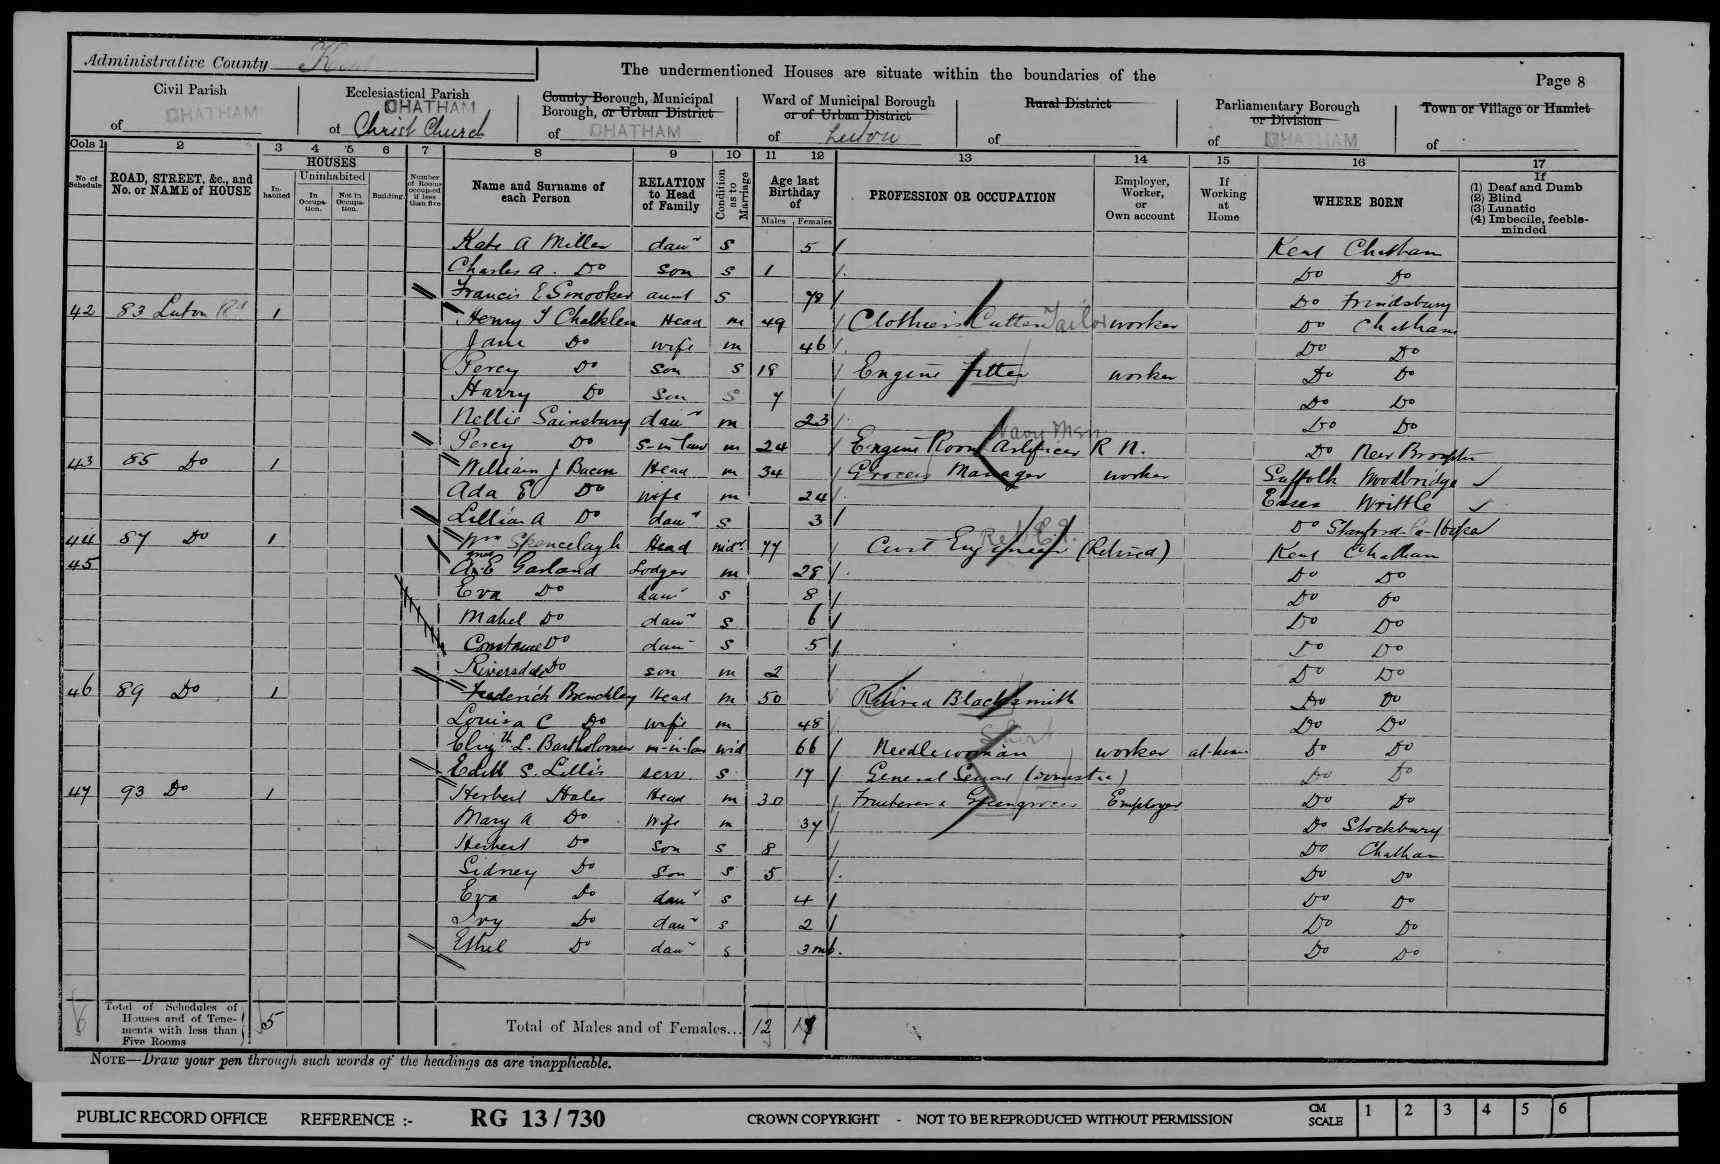 Administrative County Kent
The undermentioned Houses are situate within the boundaries of the
Page 8
Civil Parish
of CHATHAM
Ecclesiastical Parish
CHATHAM
of Christ Church
County Borough, Municipal
Borough, or Urban District
of CHATHAM
Ward of Municipal Borough
or of Urban District
of Luton
Rural District
of
Parliamentary Borough
or Division
of CHATHAM
Town or Village or Hamlet
of
Cols 1 2 3 4 5 6 7 8 9 10 11 12 13 14 15 16 17
No of Schedule
ROAD, STREET, &c., and No. or NAME of HOUSE
HOUSES
Inhabited
Uninhabited
In Occupation.
Not in Occupation.
Building
Number of Rooms occupied if less than five
Name and Surname of each Person
RELATION to Head of Family
Condition as to Marriage
Age last Birthday of
Males Females
PROFESSION OR OCCUPATION
Employer, Worker, or Own account
If Working at Home
WHERE BORN
If
(1) Deaf and Dumb
(2) Blind
(3) Lunatic
(4) Imbecile, feeble-minded
Kate A Miller daur S 5 Kent Chatham
Charles A. Do son S 1 Do Do
Francis E Smooker aunt S 78 Do Frindsbury
42 83 Luton Rd 1 Henry T Chalklen Head m 49 Clothiers Cutter Tailor worker Do Chatham
Jane Do wife m 46 Do Do
Percy Do son S 18 Engine Fitter worker Do Do
Harry Do Son S 7 Do Do
Nellie Sainsbury daur m 23 Do Do
Navy Men
Percy Do S-in-law m 24 Engine Room Artificer R N. Do New Brompton
43 85 Do 1 William J Bacon Head m 34 Grocers Manager worker Suffolk Woodbridge
Ada E Do wife m 24 Essex Writtle
Lillian A Do daur S 3 Do Stanford-le-Hope
44 87 Do 1 Wm Spencelagh Head widr 77 Civil Engineer (Retired) Kent Chatham
Ret
45 A E Garland Lodger m 28 Do Do
Eva Do daur S 8 Do Do
Mabel Do daur S 6 Do Do
Constance Do daur S 5 Do Do
Riversdale Do son m 2 Do Do
46 89 Do 1 Frederick Brenchley Head m 50 Retired Blacksmith Do Do
Louisa C Do wife m 48 Do Do
Shirt
Elizth L. Bartholomew m-in-law wid 66 Needlewoman worker at home Do Do
Edith S. Lillis serv. S 17 General Servant (domestic) Do Do
47 93 Do 1 Herbert Hales Head m 30 Fruiterer & Greengrocer Employer Do Do
Mary A Do Wife m 37 Do Stockbury
Herbert Do Son S 8 Do Chatham
Sidney Do Son S 5 Do Do
Eva Do daur S 4 Do Do
Ivy Do daur S 2 Do Do
Ethel Do daur S 3 mo. Do Do
6 Total of Schedules of Houses and of Tenements with less than Five Rooms 5
Total of Males and of Females... 12
NOTE—Draw your pen through such words of the headings as are inapplicable.
PUBLIC RECORD OFFICE REFERENCE :- RG 13 / 730 CROWN COPYRIGHT - NOT TO BE REPRODUCED WITHOUT PERMISSION CM SCALE 1 2 3 4 5 6